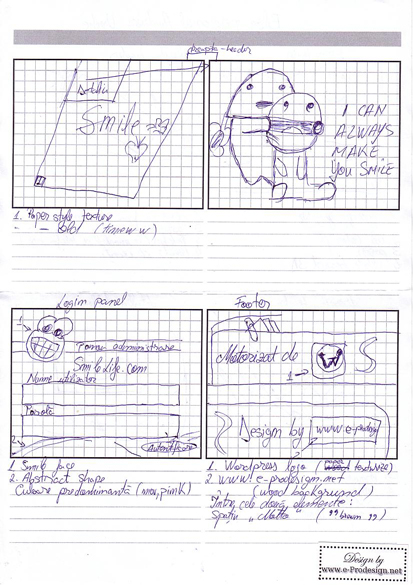 header
Smile
I CAN
ALWAYS
MAKE
YOU SMILE
1. Paper style texture
Login panel
Footer
1
Panou administrare
SmileLife.com
Nume utilizator
Parolă
2
Autentificare
Motorizat de
W
1
Design by
www.e-prodesign
2
1. Smile face
2. Abstract shape
Culoare predominantă (mov, pink)
1. Wordpress logo
2. www.e-prodesign.net
(wood background)
Între cele două elemente:
Spațiu
Design by
www.e-Prodesign.net